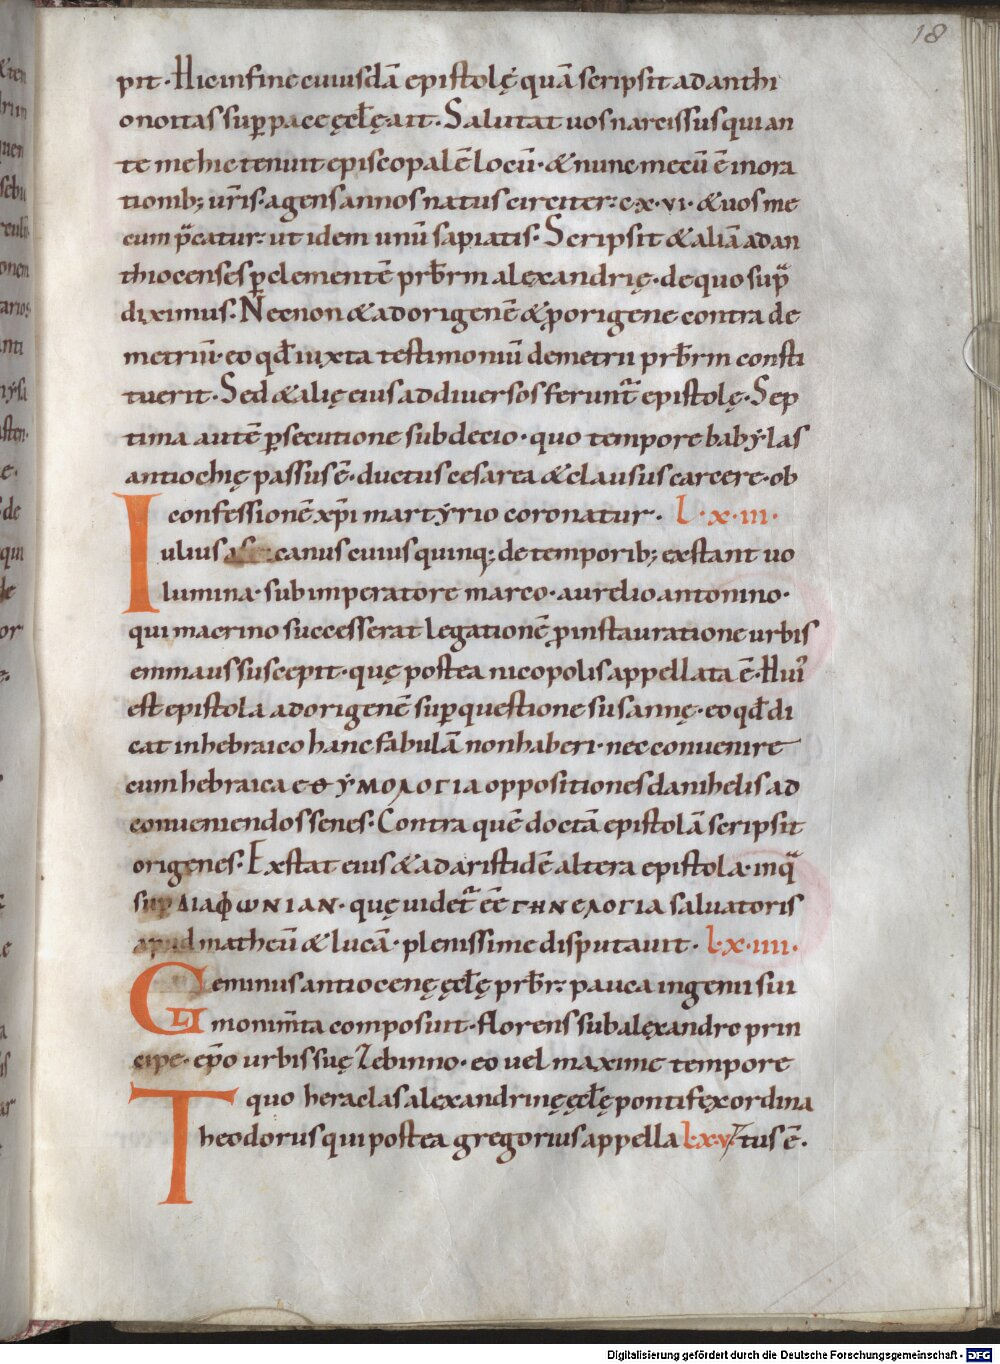 18
pit. Hic infine cuiusdā epistolę quā scripsit ad anthi
onoitas sup pace ęcłę ait. Salutat uos narcissus qui an
te me hic tenuit episcopalē locū. & nunc mecū ē in ora
tionib; uřis. agens annos natus circiter. c.x.vi. & uos me
cum p̄catur. ut idem unū sapiatis. Scripsit & aliā ad an
thiocenses p clementē prb̄rm alexandrię. de quo sup̄
diximus. Necnon & ad origenē & p origene contra de
metriū. eo qđ iuxta testimoniū demetrii prb̄rm consti
tuerit. Sed & alię eius ad diuersos ferunt̄ epistolę. Sep
tima autē psecutione sub decio. quo tempore babẏlas
antiochię passus ē. ductus cesarea & clausus carcere. ob
confessionē xp̄i martẏrio coronatur. L.x.iii.
Iulius canus cuius quinq; de temporib; exstant uo
lumina. sub imperatore marco. aurelio antonino.
qui macrino successerat legationē p instauratione urbis
emmaus suscepit. quę postea nicopolis appellata ē. Hui'
est epistola ad origenē sup questione susannę. eo qđ di
cat in hebraico hanc fabulā non haberi. nec conuenire
cum hebraica ЄΘẎΜΟΛΟΓΙΑ oppositiones danihelis ad
conueniendos senes. Contra quē doctā epistolā scripsit
origenes. Exstat eius & ad aristidē altera epistola. in q̄
sup ΔΙΑΦΩΝΙΑΝ. quę uidet̄ eē ΓΗΝΕΛΟΓΙΑ saluatoris
apud matheū & lucā. plenissime disputauit. L.x.iiii.
Geminus antiocenę ęcłę prb̄r. pauca ingenii sui
monim̄ta composuit. florens sub alęxandro prin
cipe. ep̄o urbis suę Zebinno. eo uel maxime tempore
quo heraclas alexandrinę ęcłę pontifęx ordina
Theodorus qui postea gregorius appella L.x.v. tus ē.
Digitalisierung gefördert durch die Deutsche Forschungsgemeinschaft - DFG